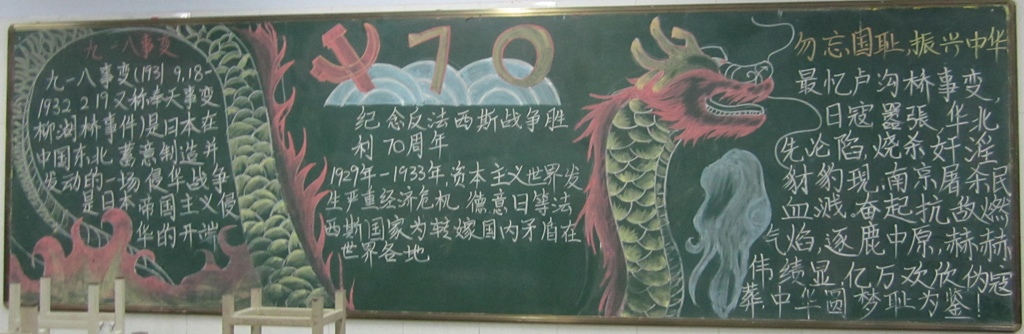 九一八事变
九一八事变(1931 9.18-
1932 2 19又称奉天事变
柳湖桥事件)是日本在
中国东北蓄意制造并
发动的一场侵华战争
是日本帝国主义侵
华的开端
70
纪念反法西斯战争胜
利70周年
1929年-1933年,资本主义世界发
生严重经济危机,德意日等法
西斯国家为转嫁国内矛盾在
世界各地
勿忘国耻,振兴中华
最忆卢沟桥事变,
日寇嚣張,华北
先沦陷,烧杀奸淫
豺豹現,南京屠杀民
血溅,奋起抗敌燃
气焰,逐鹿中原,赫赫
伟绩显,亿万欢欣伪冠
葬,中华圆梦耻为鉴!